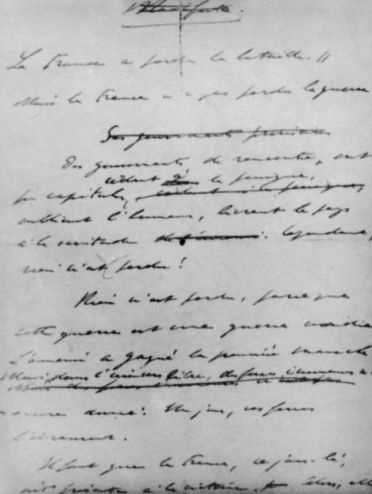 La France a perdu la bataille !!
Mais la France n'a pas perdu la guerre
Des gouvernants
Des gouvernants de rencontre, ont
cédant à la panique,
pu capituler,
oubliant l'honneur, livrant le pays
à la servitude. Cependant,
rien n'est perdu !
Rien n'est perdu, parce que
cette guerre est une guerre mondiale
L'ennemi a gagné la première manche
Mais, dans l'univers libre, des forces immenses n'
encore donné. Un jour, ces forces
l'ennemi.
Il faut que la France, ce jour-là,
soit présente à la victoire.